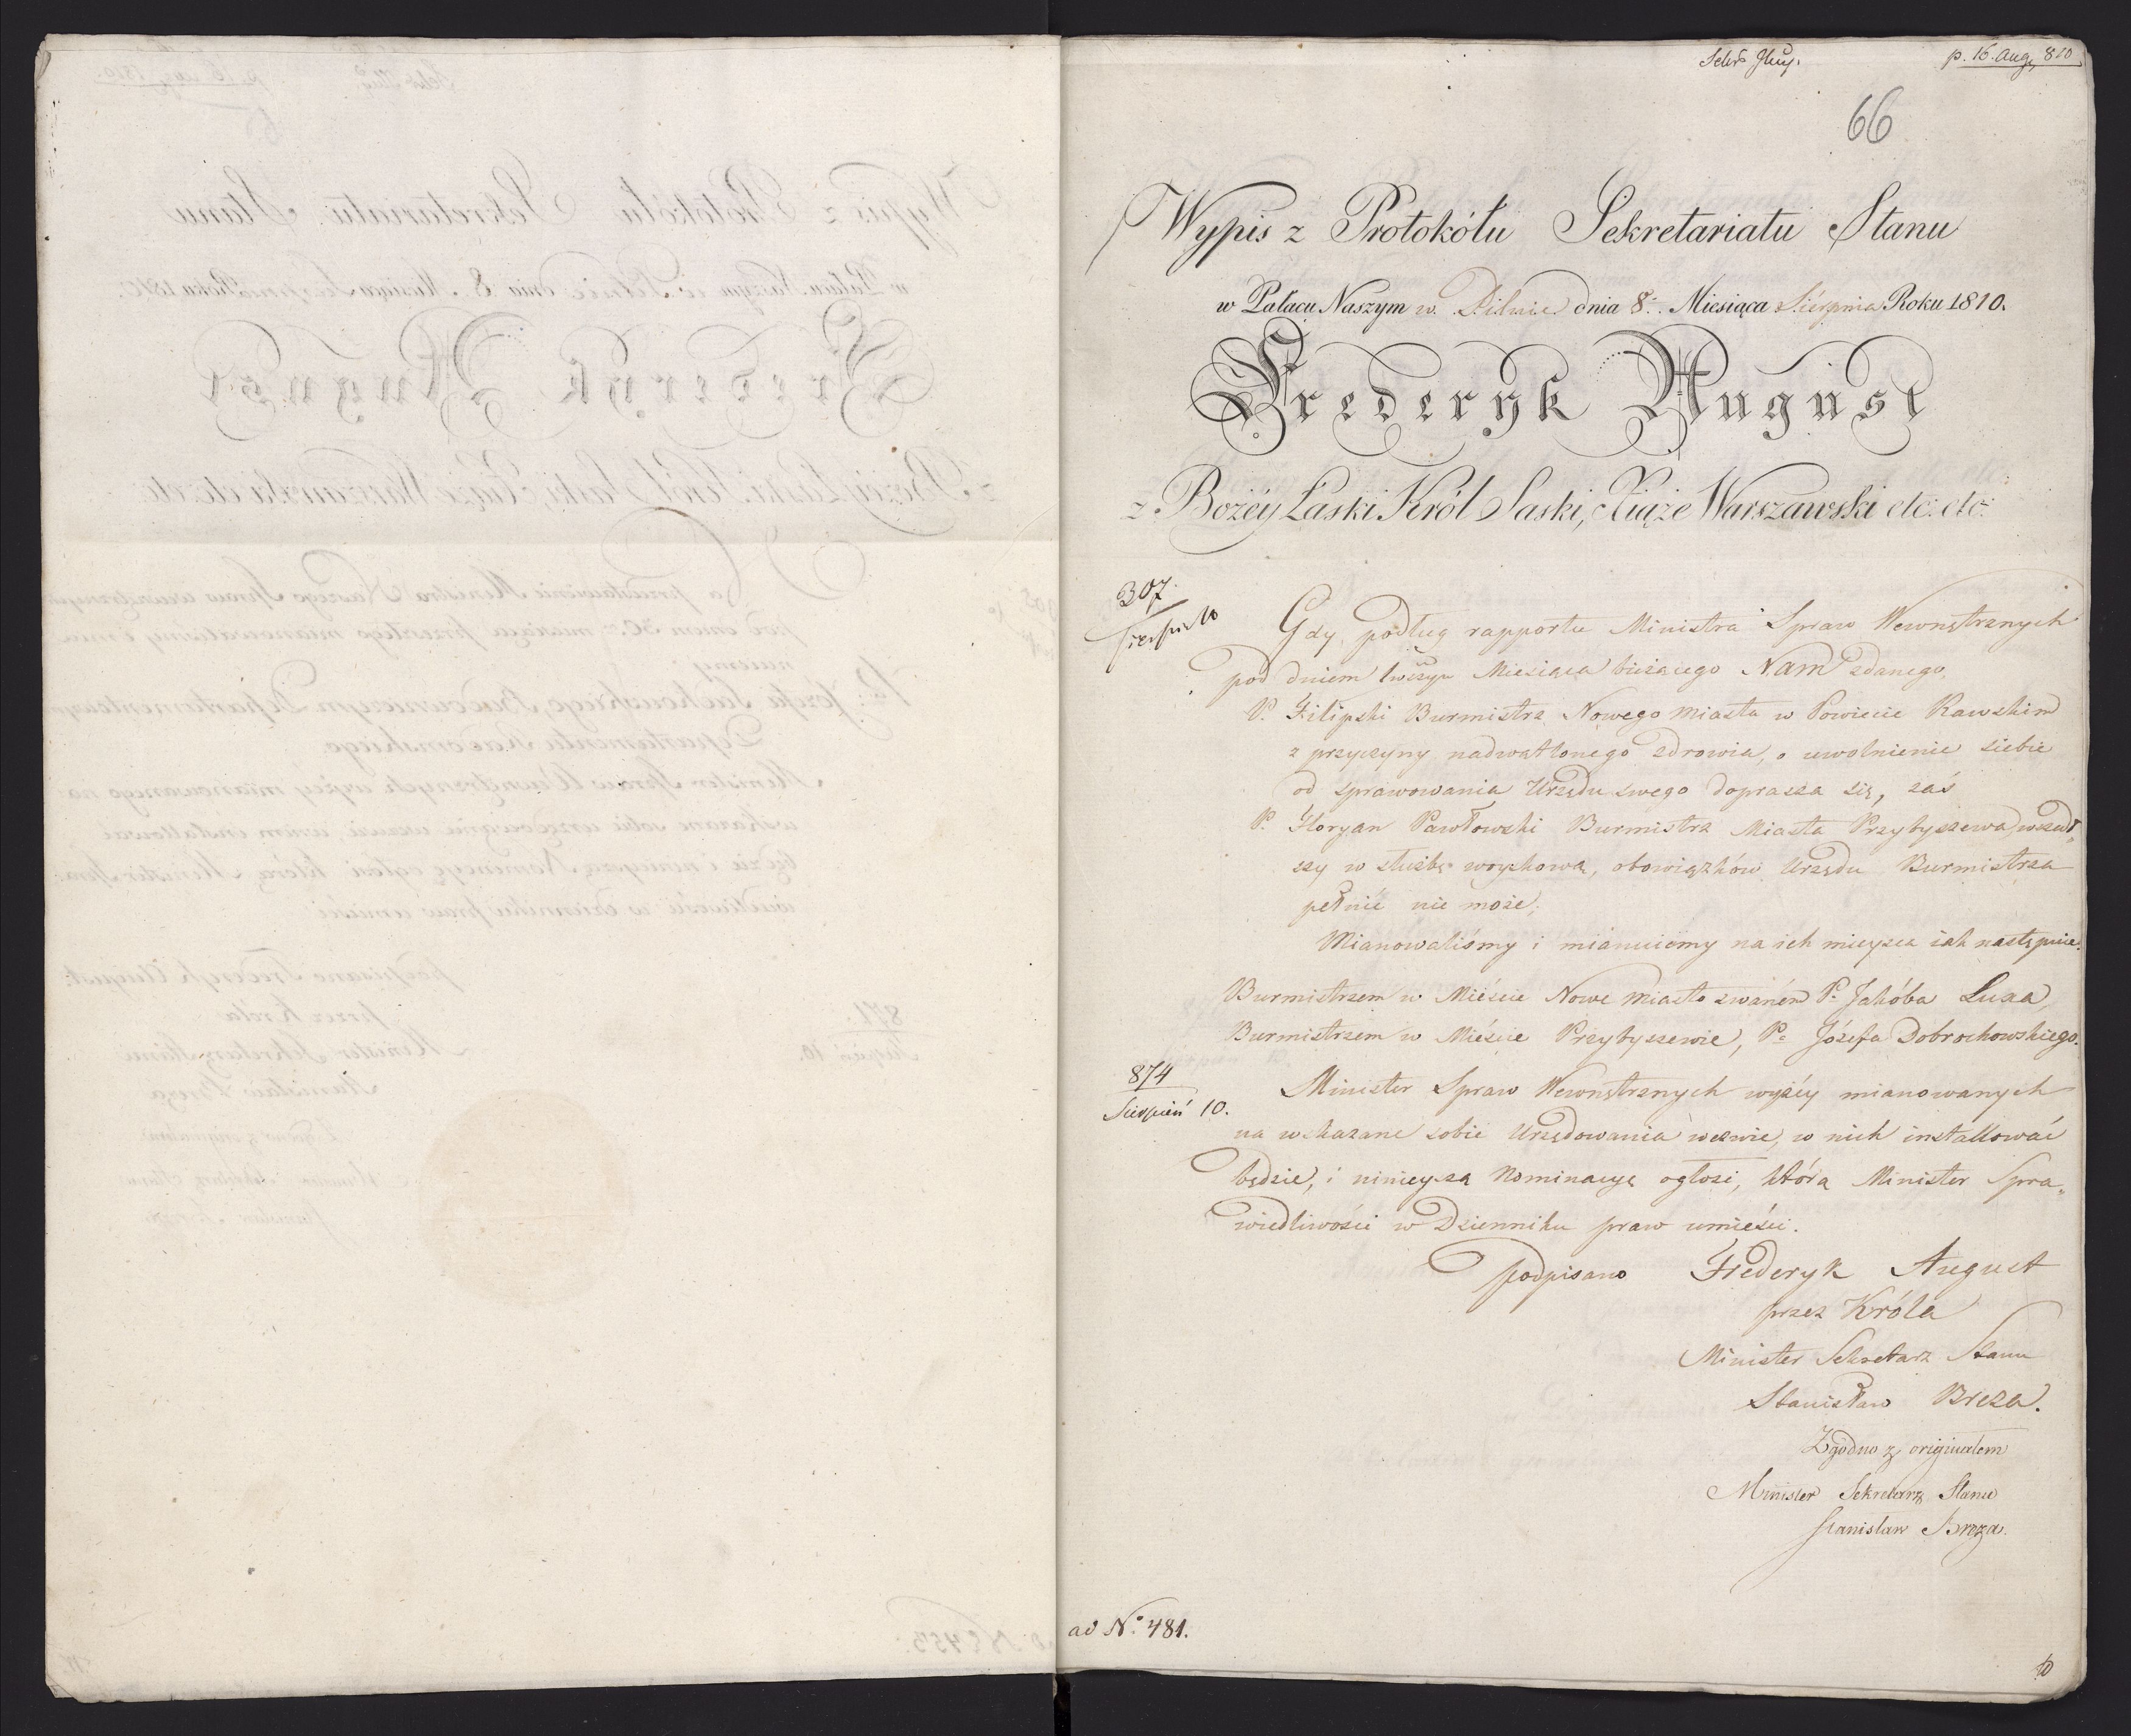 p. 16. Aug. 810
66
Wypis z Protokółu Sekretariatu Stanu
w Pałacu Naszym w Pilnie dnia 8. Miesiąca Sierpnia Roku 1810.
Frederyk August
z Bożéy Łaski Król Saski, Xiąże Warszawski etc: etc:
307.
Gdy podług rapportu Ministra Spraw Wewnętrznych
pod dniem 1wszym Miesiąca bieżącego Nam zdanego,
P. Filipski Burmistrz Nowego Miasta w Powiecie Rawskim
z przyczyny nadwątlonego zdrowia, o uwolnienie siebie
od sprawowania Urzędu swego doprasza się, zaś
P. Floryan Pawłowski Burmistrz Miasta Przybyszewa wszedł„
szy w służbę woyskową, obowiązków Urzędu Burmistrza
pełnić nie może;
Mianowaliśmy i mianuiemy na ich mieysca iak następuie.
Burmistrzem w Mieście Nowe miasto zwaném P. Jakóba Luxa,
Burmistrzem w Mieście Przybyszewie, P. Józefa Dobrochowskiego.
874
Sierpień 10.
Minister Spraw Wewnętrznych wyżéy mianowanych
na wskazane sobie Urzędowania wezwie, w nich installować
będzie, i ninieyszą Nominacyę ogłosi, którą Minister Spra„
wiedliwości w Dzienniku praw umieści.
podpisano Frederyk August
przez Króla
Minister Sekretarz Stanu
Stanisław Breza.
Zgodno z originałem
Minister Sekretarz Stanu
Stanisław Breza.
ad No. 481.